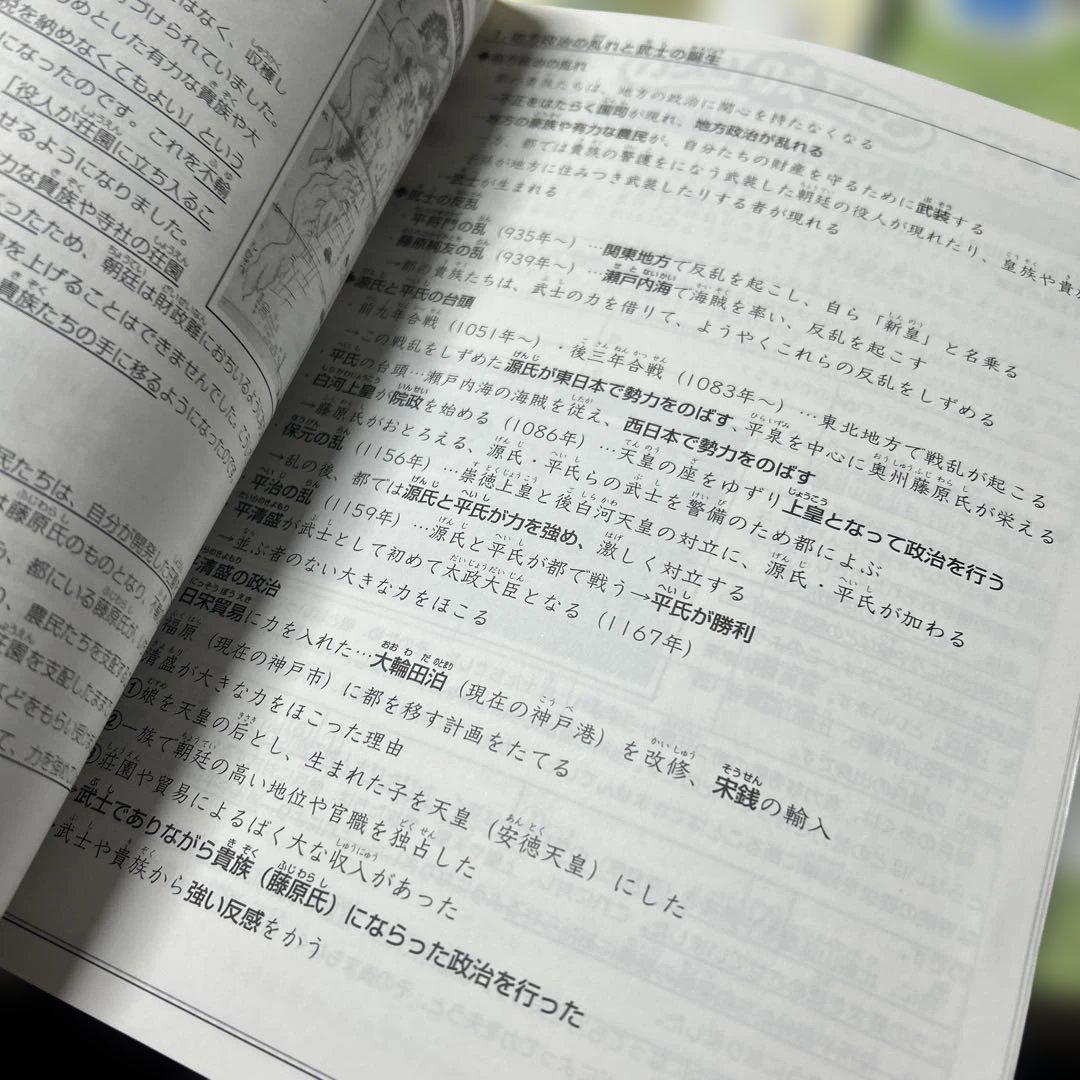 1. 地方政治の乱れと武士の誕生
●地方政治の乱れ
都の貴族たちは、地方の政治に関心を持たなくなる
→不正をはたらく国司が現れ、地方政治が乱れる
・地方の豪族や有力な農民が、自分たちの財産を守るために武装する
都では貴族の警護をになう武装した朝廷の役人が現れたり、皇族や貴族
が地方に住みつき武装したりする者が現れる
→武士が生まれる
●武士の反乱
・平将門の乱(935年～)…関東地方で反乱を起こし、自ら「新皇」と名乗る
・藤原純友の乱(939年～)…瀬戸内海で海賊を率い、反乱を起こす
→都の貴族たちは、武士の力を借りて、ようやくこれらの反乱をしずめる
●源氏と平氏の台頭
・前九年合戦(1051年～)・後三年合戦(1083年～)…東北地方で戦乱が起こる
→この戦乱をしずめた源氏が東日本で勢力をのばす、平泉を中心に奥州藤原氏が栄える
・平氏の台頭…瀬戸内海の海賊を従え、西日本で勢力をのばす
・白河上皇が院政を始める(1086年)…天皇の座をゆずり上皇となって政治を行う
→藤原氏がおとろえる、源氏・平氏らの武士を警備のため都によぶ
・保元の乱(1156年)…崇徳上皇と後白河天皇の対立に、源氏・平氏が加わる
→乱の後、都では源氏と平氏が力を強め、激しく対立する
・平治の乱(1159年)…源氏と平氏が都で戦う→平氏が勝利
平清盛が武士として初めて太政大臣となる(1167年)
→並ぶ者のない大きな力をほこる
清盛の政治
日宋貿易に力を入れた…大輪田泊(現在の神戸港)を改修、宋銭の輸入
福原(現在の神戸市)に都を移す計画をたてる
清盛が大きな力をほこった理由
①娘を天皇の后とし、生まれた子を天皇(安徳天皇)にした
②一族で朝廷の高い地位や官職を独占した
荘園や貿易によるばく大な収入があった
武士でありながら貴族(藤原氏)にならった政治を行った
武士や貴族から強い反感をかう
はなく、収穫し
づけられていました。
めとした有力な貴族や大
税を納めなくてもよい」という
になったのです。これを不輸
「役人が荘園に立ち入るこ
せるようになりました。
力な貴族や寺社の荘園
ったため、朝廷は財政難におちいるように
を上げることはできませんでした。こう
貴族たちの手に移るようになったのです。
民たちは、自分が開発した
藤原氏のものとなり、
、都にいる藤原氏が
り、農民たちを支配
荘園を支配したまま
などをもらい受け
て、力を